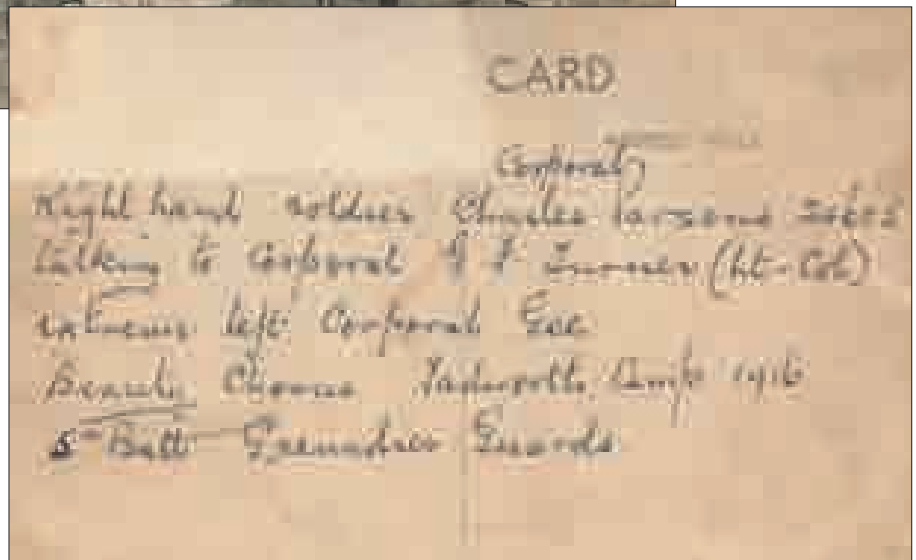 CARD
Corporal
Right hand soldier Charles Parsons
talking to Corporal Turner (Lt-Col)
extreme left Corporal Gee
Chorus Tadworth Camp 1916
5th Batt Grenadier Guards